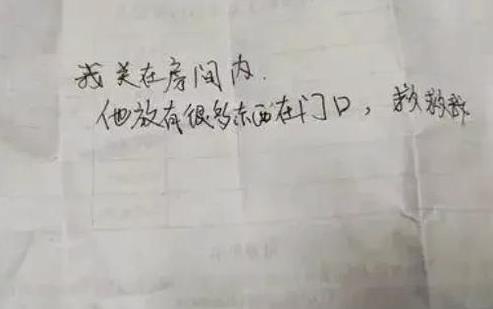 我关在房间内.
他放有很多东西在门口，救救我